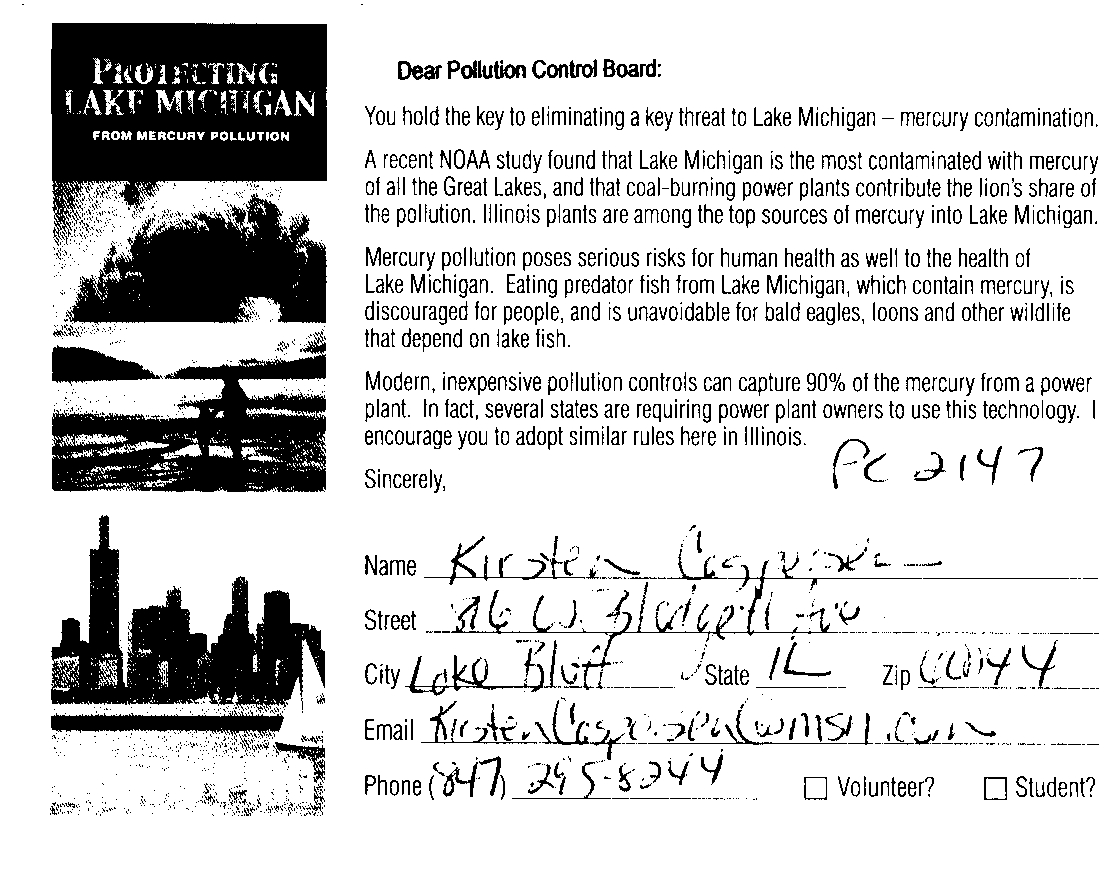 PROTECTING
LAKE MICHIGAN
FROM MERCURY POLLUTION
Dear Pollution Control Board:
You hold the key to eliminating a key threat to Lake Michigan – mercury contamination.
A recent NOAA study found that Lake Michigan is the most contaminated with mercury
of all the Great Lakes, and that coal-burning power plants contribute the lion's share of
the pollution. Illinois plants are among the top sources of mercury into Lake Michigan.
Mercury pollution poses serious risks for human health as well to the health of
Lake Michigan. Eating predator fish from Lake Michigan, which contain mercury, is
discouraged for people, and is unavoidable for bald eagles, loons and other wildlife
that depend on lake fish.
Modern, inexpensive pollution controls can capture 90% of the mercury from a power
plant. In fact, several states are requiring power plant owners to use this technology. I
encourage you to adopt similar rules here in Illinois.
PC 2147
Sincerely,
Name Kirsten Caspersen
Street W. Blodgett Ave
City Lake Bluff State IL Zip 60044
Email KirstenCaspersen@msn.com
Phone (847) 295-8244
Volunteer? Student?